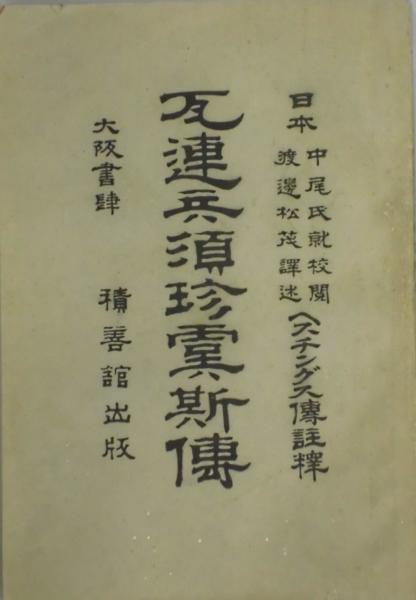 日本 中尾氏就校閲
渡邊松茂譯述
ヘスチングス傳註釋
瓦連兵須珍虞斯傳
大阪書肆 積善舘出版